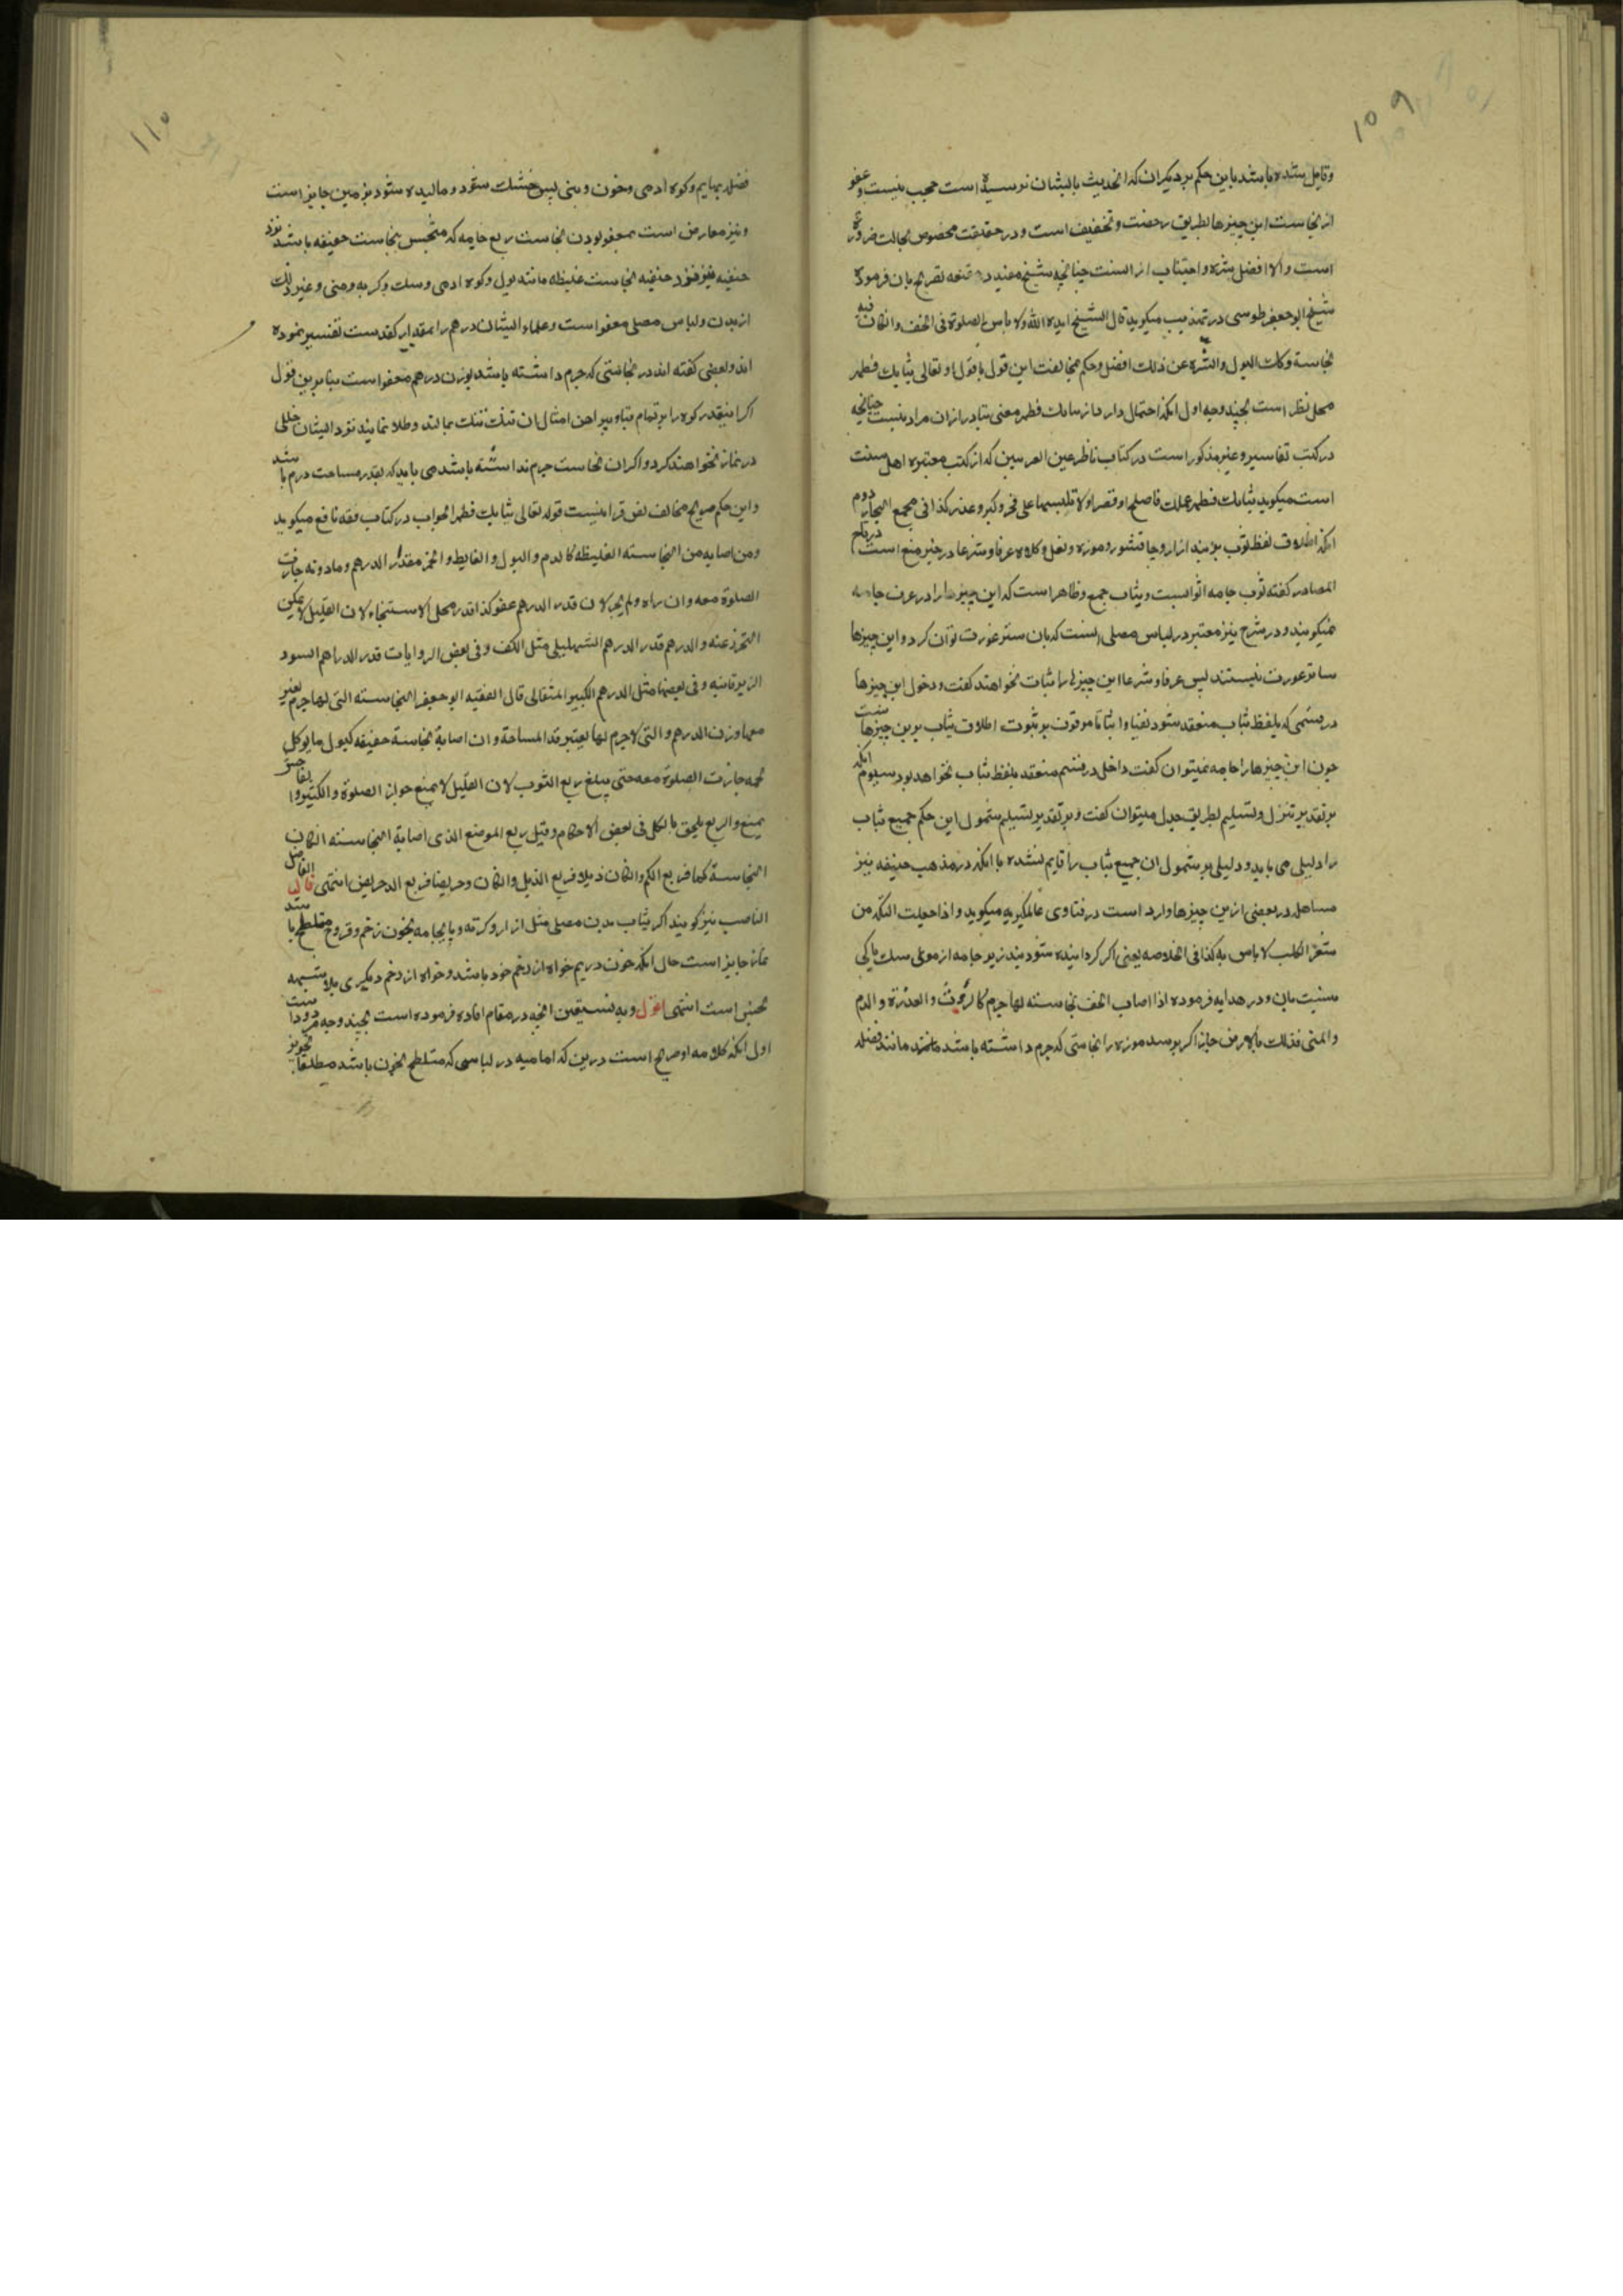 ۱۰۹
وقایل شده باشد باین حکم بر دیگران که انحدیث بایشان نرسیده است حجب نیست و عفو
از نجاست این چیزها بطریق رخصت و تخفیف است و در حقیقت مخصوص بحالت ضرورة
است والا افضل تنزه و اجتناب از انست چنانچه شیخ مفید در مقنعه تصریح بان فرموده
شیخ ابو جعفر طوسی در تهذیب میکوید قال الشیخ ایده الله ولا باس بالصلوة فی الخف وان کان فیه
نجاسة وکذلک النعل والتنزه عن ذلک افضل وحکم بمخالفت این قول با قول او تعالی ثیابک فطهر
محل نظر است بچند وجه اول انکه احتمال دارد از ثیابک فطهر معنی متبادر ازان مراد نیست چنانچه
در کتب تفاسیر وغیر مذکور است در کتاب ناظر عین الغریبین که از کتب معتبره اهل سنت
است میکوید ثیابک فطهر عملک فاصلح او قصر او لا تلبسها علی فخر وکبر وغدر کذا فی مجمع البحار دوم
انکه اطلاق لفظ ثوب بر بند ازار وجاقشور وموزه ونعل وکلاه عرفا وشرعا در حیز منع است در تاج
المصادر کفته ثوب جامه اثواب وثیاب جمع وظاهر است که این چیزها را در عرف جامه
نمیکویند ودر شرح نیز معتبر در لباس مصلی انست که بان ستر عورت توان کرد واین چیزها
ساتر عورت نیستند پس عرفا وشرعا این چیزها را ثیاب نخواهند کفت ودخول این چیزها
در قسمی که بلفظ ثیاب منعقد شود نفیا واثباتا موقوف بر ثبوت اطلاق ثیاب برین چیزها
چون این چیزها را جامه نمیتوان کفت داخل در قسم منعقد بلفظ ثیاب نخواهد بود سیوم انکه
بر تقدیر تنزل وتسلیم بطریق جدل میتوان کفت وبر تقدیر تسلیم شمول این حکم جمیع ثیاب
را دلیلی می باید ودلیلی بر شمول ان جمیع ثیاب را قایم نشده با انکه در مذهب حنیفه نیز
مساهله در بعضی ازین چیزها وارد است در فتاوی عالمکیریه میکوید واذا جعلت التکة من
شعر الکلب لا باس به کذا فی الخلاصه یعنی اکر کردانیده شود بند زیر جامه از موی سک باکی
نیست بان ودر هدایه فرموده اذا اصاب الخف نجاسته لها جرم کالروث والعذرة والدم
والمنی فدلک بالارض جاز اکر برسد موزه را نجاستی که جرم داشته باشد مانند فضله
۱۱۰
فضله بهایم وکوه ادمی وخون ومنی پس خشک شود ومالیده شود بزمین جایز است
ونیز معارض است بمعفو بودن نجاست ربع جامه که متنجس بنجاست خفیفه باشد نزد
حنفیه نیز نزد حنفیه نجاست غلیظه مانند بول وکوه ادمی وسک وکربه ومنی وغیر ذلک
از بدن ولباس مصلی معفو است وعلماء ایشان درهم را بمقدار کف دست تفسیر نموده
اند وبعضی کفته اند در نجاستی که جرم داشته باشد بوزن درهم معفو است بنا برین قول
اکر اینقدر کوه را بر تمام قبا وپیراهن امثال ان تنک تنک بمالند وطلا نمایند نزد ایشان خللی
در نماز نخواهند کرد واکر ان نجاست جرم نداشته باشد می باید که بقدر مساحت درم باشد
واین حکم صریح مخالف نص قرانیست قوله تعالی ثیابک فطهر الجواب در کتاب فقه نافع میکوید
ومن اصابه من النجاسته الغلیظه کالدم والبول والغایط والخمر مقدار الدرهم وما دونه جازت
الصلوة معه وان زاد ولم یجز لان قدر الدرهم عفو کذا قدر محل الاستنجاء لان القلیل لا یمکن
التحرز عنه والدرهم قدر الدرهم الشهلیلی مثل الکف وفی بعض الروایات قدر الدراهم السود
الزبرقانیه وفی بعضها مثل الدرهم الکبیر المثقالی قال الفقیه ابو جعفر النجاسته التی لها جرم یعتبر
معها وزن الدرهم والتی لا جرم لها یعتبر قدر المساحة وان اصابه نجاسة خفیفه کبول ما یوکل
لحمه جازت الصلوة معه حتی یبلغ ربع الثوب لان القلیل لا یمنع جواز الصلوة والکثیر
یمنع والربع ملحق بالکل فی بعض الاحکام وقیل ربع الموضع الذی اصابه النجاسته ان کان
النجاسة کما فربع الکم وان کان ذیلا فربع الذیل وان کان دخریصا فربع الدخریص انتهی قال الفاضل
الناصب نیز کویند اکر ثیاب بدن مصلی مثل ازار وکرته وپایجامه بخون زخم وقروح متلطخ باشد
نماز جایز است حال انکه خون وریم خواه از زخم خود باشد وخواه از زخم دیکری بلا شبهه
نجس است انتهی اقول وبه نستعین انچه در مقام افاده فرموده است بچند وجه مردود است
اول انکه کلامه او صریح است درین که امامیه در لباسی که متلطخ بخون باشد مطلقا تجویز